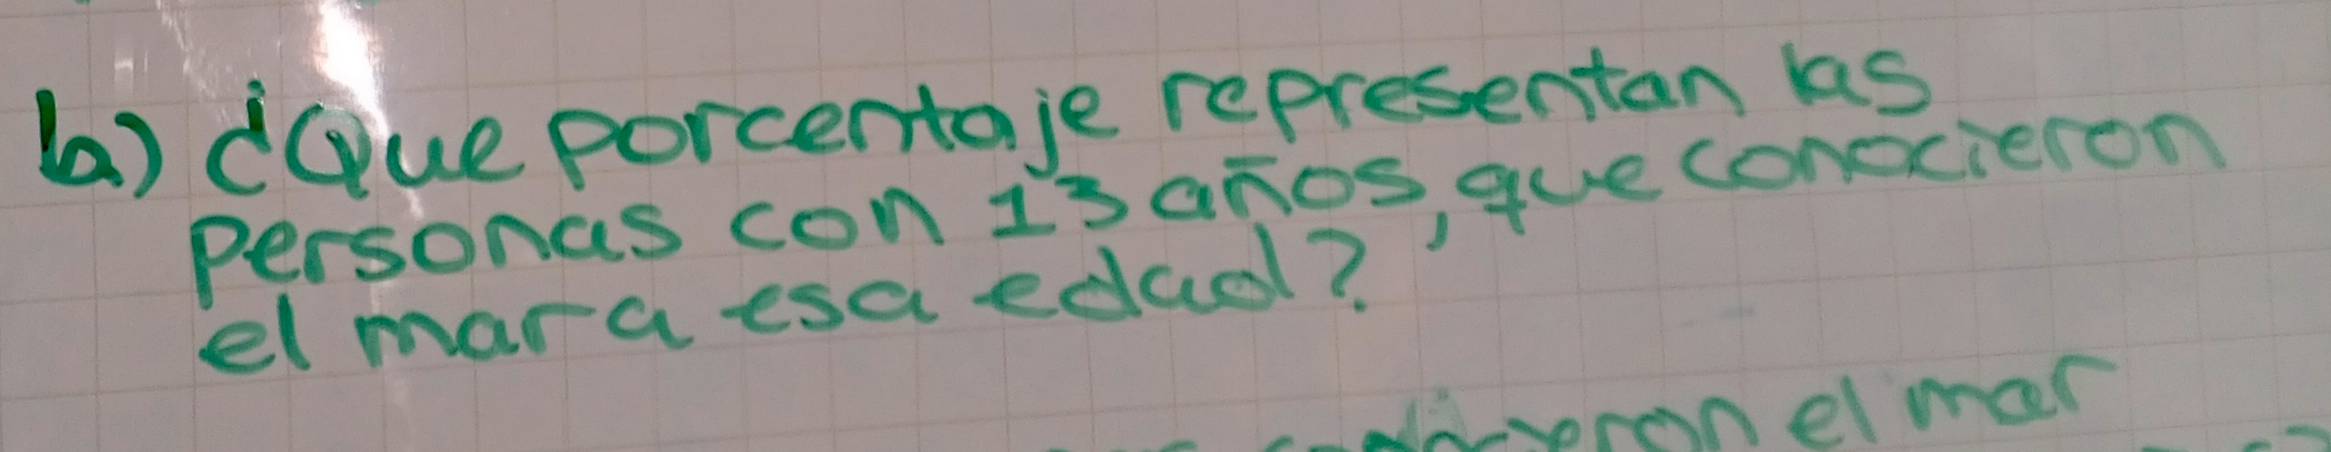 b) ¿Que porcentaje representan las
personas con 13 años, que conocieron
el mar a esa edad?
el mar